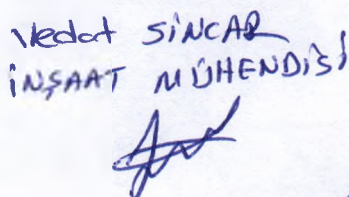 Vedat SİNCAR
İNŞAAT MÜHENDİSİ